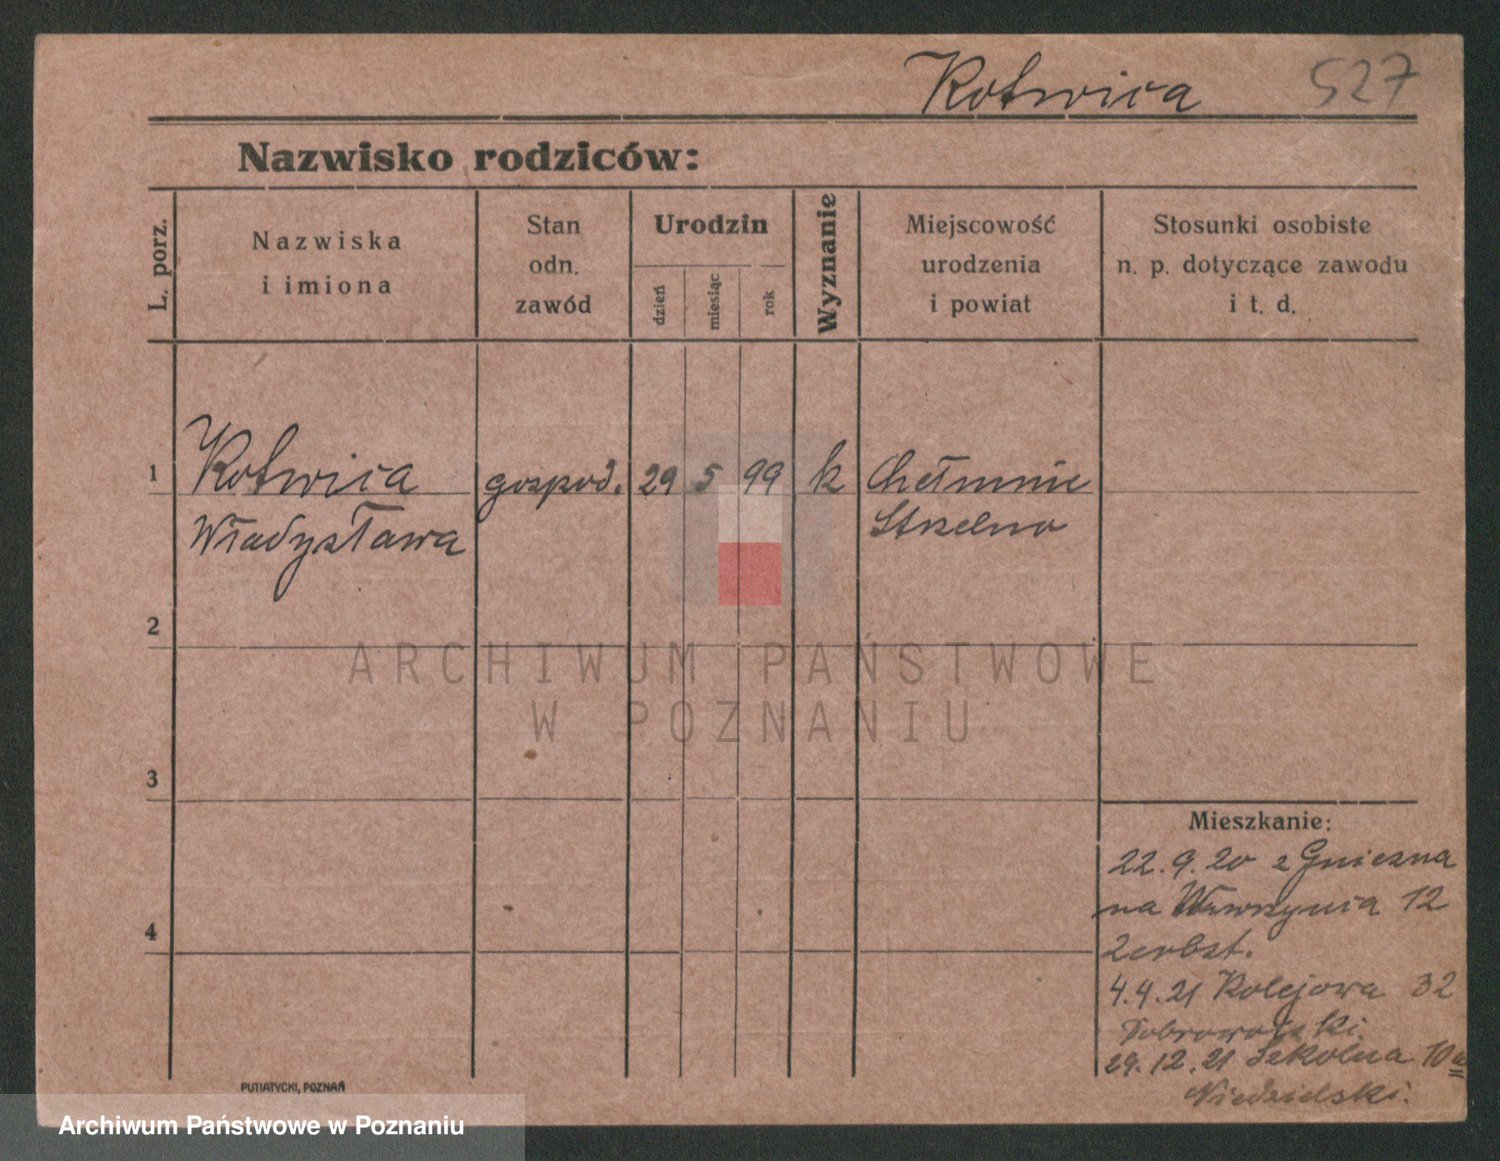 Kotwica 527
Nazwisko rodziców:
L. porz.
Nazwiska
i imiona
Stan
odn.
zawód
Urodzin
dzień
miesiąc
rok
Wyznanie
Miejscowość
urodzenia
i powiat
Stosunki osobiste
n. p. dotyczące zawodu
i t. d.
1 Kotwica gospod. 29 5 99 k Chełmnie
Władysława Strzelno
2
ARCHIWUM PAŃSTWOWE
W POZNANIU
3
Mieszkanie:
22.9.20 z Gniezna
na Wawrzynia 12
4
Zerbst.
4.4.21 Kolejowa 32
Dobrowolski
29.12.21 Szkolna 10a
Niedzielski.
PUTIATYCKI, POZNAŃ
Archiwum Państwowe w Poznaniu